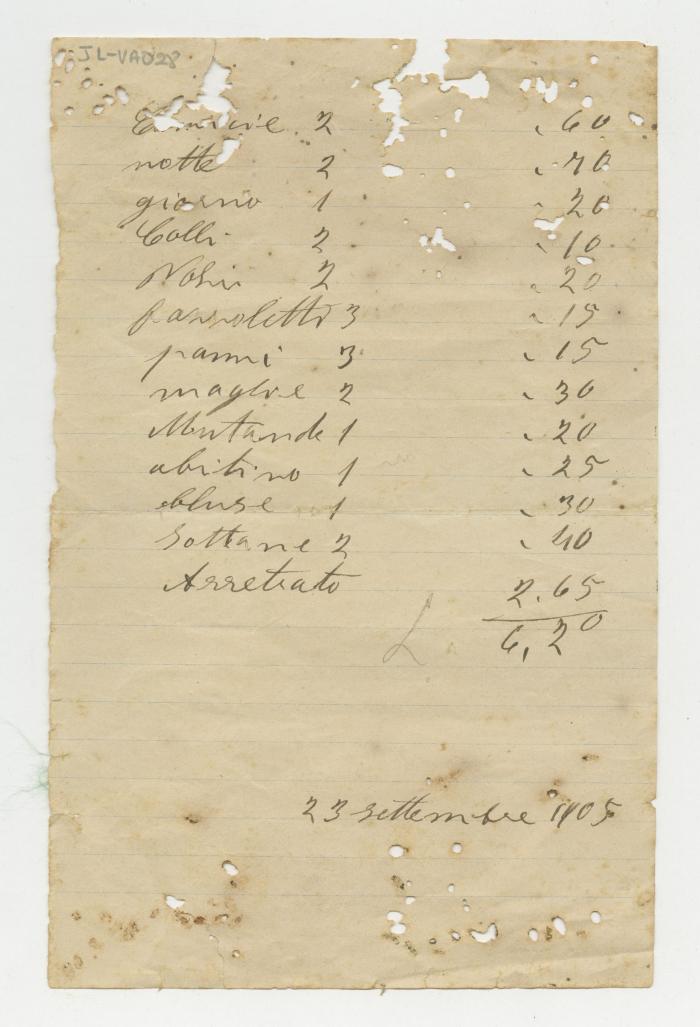 JL-VA028
Camicie 2 . 60
notte 2 . 70
giorno 1 . 20
Colli 2 . 10
Polsi 2 . 20
fazzoletti 3 . 15
panni 3 . 15
maglie 2 . 30
Mutande 1 . 20
abitino 1 . 25
bluse 1 . 30
Sottane 2 . 40
Arretrato 2.65
L 6,20
23 settembre 1905